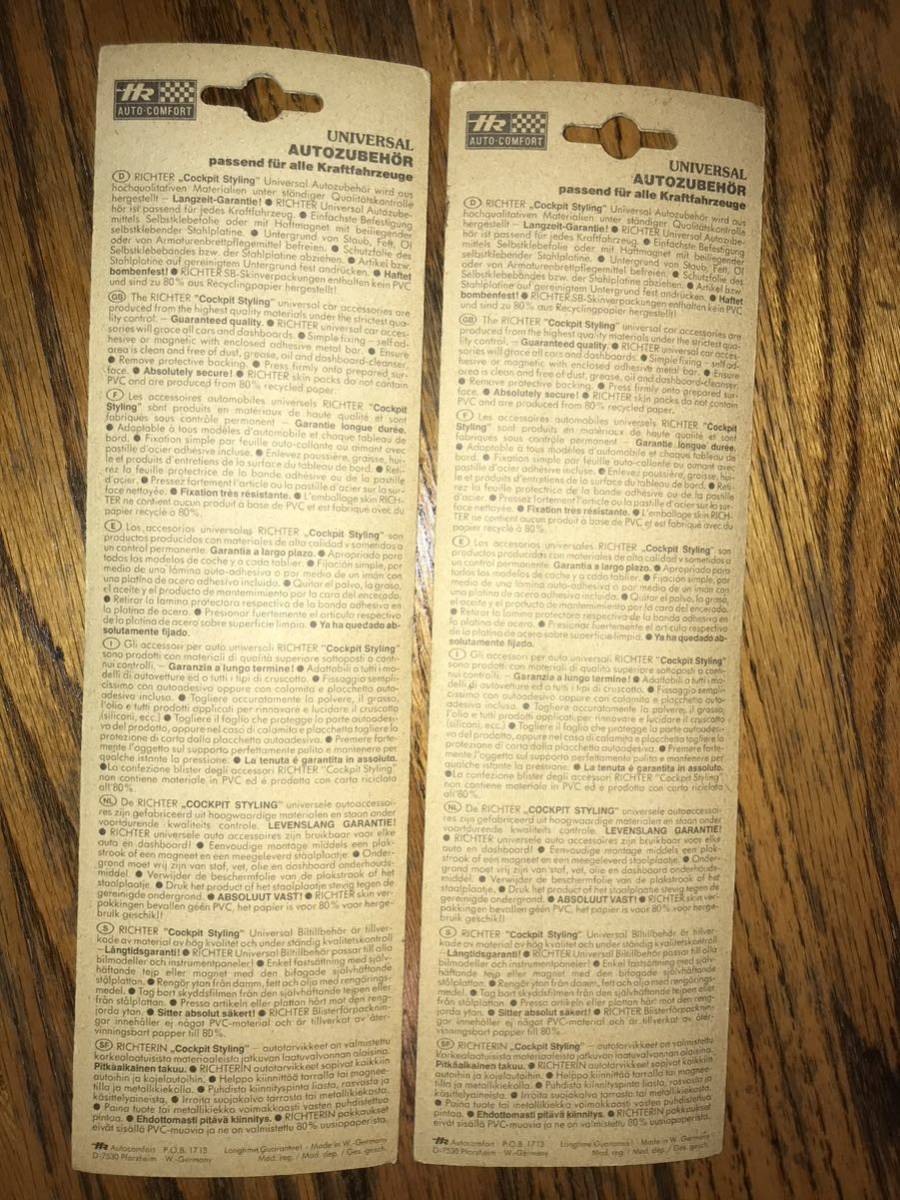 HR
AUTO-COMFORT
UNIVERSAL
AUTOZUBEHÖR
passend für alle Kraftfahrzeuge
D RICHTER „Cockpit Styling" Universal Autozubehör wird aus
hochqualitativen Materialien unter ständiger Qualitätskontrolle
hergestellt – Langzeit-Garantie! ● RICHTER Universal Autozube-
hör ist passend für jedes Kraftfahrzeug. ● Einfachste Befestigung
mittels Selbstklebefolie oder mit Haftmagnet mit beiliegender
selbstklebender Stahlplatine. ● Untergrund von Staub, Fett, Öl
oder von Armaturenbrettpflegemittel befreien. ● Schutzfolie des
Selbstklebebandes bzw. der Stahlplatine abziehen. ● Artikel bzw.
Stahlplatine auf gereinigtem Untergrund fest andrücken. ● Haftet
bombenfest! ● RICHTER SB-Skinverpackungen enthalten kein PVC
und sind zu 80% aus Recyclingpapier hergestellt!
GB The RICHTER "Cockpit Styling" universal car accessories are
produced from the highest quality materials under the strictest qua-
lity control. – Guaranteed quality. ● RICHTER universal car acces-
sories will grace all cars and dashboards. ● Simple fixing – self ad-
hesive or magnetic with enclosed adhesive metal bar. ● Ensure
area is clean and free of dust, grease, oil and dashboard-cleanser.
● Remove protective backing. ● Press firmly onto prepared sur-
face. ● Absolutely secure! ● RICHTER skin packs do not contain
PVC and are produced from 80% recycled paper.
F Les accessoires automobiles universels RICHTER "Cockpit
Styling" sont produits en matériaux de haute qualité et sont
fabriqués sous contrôle permanent – Garantie longue durée.
● Adaptable à tous modèles d'automobile et chaque tableau de
bord. ● Fixation simple par feuille auto-collante ou aimant avec
pastille d'acier adhésive incluse. ● Enlevez poussière, graisse, hui-
le et produits d'entretiens de la surface du tableau de bord. ● Reti-
rez la feuille protectrice de la bande adhésive ou de la pastille
d'acier. ● Pressez fortement l'article ou la pastille d'acier sur la sur-
face nettoyée. ● Fixation très résistante. ● L'emballage skin RICH-
TER ne contient aucun produit à base de PVC et est fabriqué avec du
papier recyclé à 80%.
E Los accesorios universales RICHTER „Cockpit Styling" son
productos producidos con materiales de alta calidad y sometidos a
un control permanente. Garantia a largo plazo. ● Apropriado para
todos los modelos de coche y a cada tablier. ● Fijación simple, por
medio de una lámina auto-adhesiva o por medio de un imán con
una platina de acero adhesiva incluido. ● Quitar el polvo, la grasa,
el aceite y el producto de mantenimiento por la cara del encerado.
● Retirar la lamina protectora respectiva de la banda adhesiva en
la platina de acero. ● Presionar fuertemente el articulo respectivo
de la platina de acero sobre superficie limpia. ● Ya ha quedado ab-
solutamente fijado.
I Gli accessori per auto universali RICHTER "Cockpit Styling"
sono prodotti con materiali di qualità superiore sottoposti a conti-
nui controlli. – Garanzia a lungo termine! ● Adattabili a tutti i mo-
delli di autovetture ed a tutti i tipi di cruscotto. ● Fissaggio sempli-
cissimo con autoadesivo oppure con calamita e placchetta auto-
adesiva inclusa. ● Togliere accuratamente la polvere, il grasso,
l'olio e tutti prodotti applicati per rinnovare e lucidare il cruscotto
(siliconi, ecc.) ● Togliere il foglio che protegge la parte autoadesi-
va del prodotto, oppure nel caso di calamita e placchetta togliere la
protezione di carta dalla placchetta autoadesiva. ● Premere forte-
mente l'oggetto sul supporto perfettamente pulito e mantenere per
qualche istante la pressione. ● La tenuta é garantita in assoluto.
● La confezione blister degli accessori RICHTER "Cockpit Styling"
non contiene materiale in PVC ed é prodotta con carta riciclata
all'80%.
NL De RICHTER „COCKPIT STYLING" universele autoaccessoi-
res zijn gefabriceerd uit hoogwaardige materialen en staan onder
voortdurende kwaliteits controle. LEVENSLANG GARANTIE!
● RICHTER universele auto accessoires zijn bruikbaar voor elke
auto en dashboard! ● Eenvoudige montage middels een plak-
strook of een magneet en een meegeleverd staalplaatje. ● Onder-
grond moet vrij zijn van stof, vet, olie en dashboard onderhouds-
middel. ● Verwijder de beschermfolie van de plakstrook of het
staalplaatje. ● Druk het product of het staalplaatje stevig tegen de
gereinigde ondergrond. ● ABSOLUUT VAST! ● RICHTER skin ver-
pakkingen bevallen géén PVC, het papier is voor 80% voor herge-
bruik geschikt!
S RICHTER "Cockpit Styling" Universal Biltillbehör är tillver-
kade av material av hög kvalitet och under ständig kvalitetskontroll
– Långtidsgaranti! ● RICHTER Universal Biltillbehör passar till alla
bilmodeller och instrumentpaneler! ● Enkel fastsättning med själv-
häftande tejp eller magnet med den bifogade självhäftande
stålplattan. ● Rengör ytan från damm, fett och olja med rengörings-
medel. ● Tag bort skyddsfilmen från den självhäftande tejpen eller
från stålplattan. ● Pressa artikeln eller plattan hårt mot den reng-
jorda ytan. ● Sitter absolut säkert! ● RICHTER Blisterförpacknin-
gar innehåller ej något PVC-material och är tillverkat av åter-
vinningsbart papper till 80%.
SF RICHTERIN „Cockpit Styling" – autotarvikkeet on valmistettu
korkealaatuisista materiaaleista jatkuvan laatuvalvonnan alaisina.
Pitkäaikainen takuu. ● RICHTERIN autotarvikkeet sopivat kaikkiin
autoihin ja kojelautoihin. ● Helppo kiinnittää tarralla tai magnee-
tilla ja metallikiekolla. ● Puhdista kiinnityspinta liasta, rasvasta ja
käsittelyaineista. ● Irroita suojakalvo tarrasta tai metallikiekosta.
● Paina tuote tai metallikiekko voimakkaasti vasten puhdistettua
pintaa. ● Ehdottomasti pitävä kiinnitys. ● RICHTERIN pakkaukset
eivät sisällä PVC-muovia ja ne on valmistettu 80% uusiopaperista.
HR Autocomfort P.O.B. 1713 Longtime Guarantee! - Made in W.-Germany
D-7530 Pforzheim - W.-Germany Mod. reg. / Mod. dep. / Ges. gesch.
HR
AUTO-COMFORT
UNIVERSAL
AUTOZUBEHÖR
passend für alle Kraftfahrzeuge
D RICHTER „Cockpit Styling" Universal Autozubehör wird aus
hochqualitativen Materialien unter ständiger Qualitätskontrolle
hergestellt – Langzeit-Garantie! ● RICHTER Universal Autozube-
hör ist passend für jedes Kraftfahrzeug. ● Einfachste Befestigung
mittels Selbstklebefolie oder mit Haftmagnet mit beiliegender
selbstklebender Stahlplatine. ● Untergrund von Staub, Fett, Öl
oder von Armaturenbrettpflegemittel befreien. ● Schutzfolie des
Selbstklebebandes bzw. der Stahlplatine abziehen. ● Artikel bzw.
Stahlplatine auf gereinigtem Untergrund fest andrücken. ● Haftet
bombenfest! ● RICHTER SB-Skinverpackungen enthalten kein PVC
und sind zu 80% aus Recyclingpapier hergestellt!
GB The RICHTER "Cockpit Styling" universal car accessories are
produced from the highest quality materials under the strictest qua-
lity control. – Guaranteed quality. ● RICHTER universal car acces-
sories will grace all cars and dashboards. ● Simple fixing – self ad-
hesive or magnetic with enclosed adhesive metal bar. ● Ensure
area is clean and free of dust, grease, oil and dashboard-cleanser.
● Remove protective backing. ● Press firmly onto prepared sur-
face. ● Absolutely secure! ● RICHTER skin packs do not contain
PVC and are produced from 80% recycled paper.
F Les accessoires automobiles universels RICHTER "Cockpit
Styling" sont produits en matériaux de haute qualité et sont
fabriqués sous contrôle permanent – Garantie longue durée.
● Adaptable à tous modèles d'automobile et chaque tableau de
bord. ● Fixation simple par feuille auto-collante ou aimant avec
pastille d'acier adhésive incluse. ● Enlevez poussière, graisse, hui-
le et produits d'entretiens de la surface du tableau de bord. ● Reti-
rez la feuille protectrice de la bande adhésive ou de la pastille
d'acier. ● Pressez fortement l'article ou la pastille d'acier sur la sur-
face nettoyée. ● Fixation très résistante. ● L'emballage skin RICH-
TER ne contient aucun produit à base de PVC et est fabriqué avec du
papier recyclé à 80%.
E Los accesorios universales RICHTER „Cockpit Styling" son
productos producidos con materiales de alta calidad y sometidos a
un control permanente. Garantia a largo plazo. ● Apropriado para
todos los modelos de coche y a cada tablier. ● Fijación simple, por
medio de una lámina auto-adhesiva o por medio de un imán con
una platina de acero adhesiva incluido. ● Quitar el polvo, la grasa,
el aceite y el producto de mantenimiento por la cara del encerado.
● Retirar la lamina protectora respectiva de la banda adhesiva en
la platina de acero. ● Presionar fuertemente el articulo respectivo
de la platina de acero sobre superficie limpia. ● Ya ha quedado ab-
solutamente fijado.
I Gli accessori per auto universali RICHTER "Cockpit Styling"
sono prodotti con materiali di qualità superiore sottoposti a conti-
nui controlli. – Garanzia a lungo termine! ● Adattabili a tutti i mo-
delli di autovetture ed a tutti i tipi di cruscotto. ● Fissaggio sempli-
cissimo con autoadesivo oppure con calamita e placchetta auto-
adesiva inclusa. ● Togliere accuratamente la polvere, il grasso,
l'olio e tutti prodotti applicati per rinnovare e lucidare il cruscotto
(siliconi, ecc.) ● Togliere il foglio che protegge la parte autoadesi-
va del prodotto, oppure nel caso di calamita e placchetta togliere la
protezione di carta dalla placchetta autoadesiva. ● Premere forte-
mente l'oggetto sul supporto perfettamente pulito e mantenere per
qualche istante la pressione. ● La tenuta é garantita in assoluto.
● La confezione blister degli accessori RICHTER "Cockpit Styling"
non contiene materiale in PVC ed é prodotta con carta riciclata
all'80%.
NL De RICHTER „COCKPIT STYLING" universele autoaccessoi-
res zijn gefabriceerd uit hoogwaardige materialen en staan onder
voortdurende kwaliteits controle. LEVENSLANG GARANTIE!
● RICHTER universele auto accessoires zijn bruikbaar voor elke
auto en dashboard! ● Eenvoudige montage middels een plak-
strook of een magneet en een meegeleverd staalplaatje. ● Onder-
grond moet vrij zijn van stof, vet, olie en dashboard onderhouds-
middel. ● Verwijder de beschermfolie van de plakstrook of het
staalplaatje. ● Druk het product of het staalplaatje stevig tegen de
gereinigde ondergrond. ● ABSOLUUT VAST! ● RICHTER skin ver-
pakkingen bevallen géén PVC, het papier is voor 80% voor herge-
bruik geschikt!
S RICHTER "Cockpit Styling" Universal Biltillbehör är tillver-
kade av material av hög kvalitet och under ständig kvalitetskontroll
– Långtidsgaranti! ● RICHTER Universal Biltillbehör passar till alla
bilmodeller och instrumentpaneler! ● Enkel fastsättning med själv-
häftande tejp eller magnet med den bifogade självhäftande
stålplattan. ● Rengör ytan från damm, fett och olja med rengörings-
medel. ● Tag bort skyddsfilmen från den självhäftande tejpen eller
från stålplattan. ● Pressa artikeln eller plattan hårt mot den reng-
jorda ytan. ● Sitter absolut säkert! ● RICHTER Blisterförpacknin-
gar innehåller ej något PVC-material och är tillverkat av åter-
vinningsbart papper till 80%.
SF RICHTERIN „Cockpit Styling" – autotarvikkeet on valmistettu
korkealaatuisista materiaaleista jatkuvan laatuvalvonnan alaisina.
Pitkäaikainen takuu. ● RICHTERIN autotarvikkeet sopivat kaikkiin
autoihin ja kojelautoihin. ● Helppo kiinnittää tarralla tai magnee-
tilla ja metallikiekolla. ● Puhdista kiinnityspinta liasta, rasvasta ja
käsittelyaineista. ● Irroita suojakalvo tarrasta tai metallikiekosta.
● Paina tuote tai metallikiekko voimakkaasti vasten puhdistettua
pintaa. ● Ehdottomasti pitävä kiinnitys. ● RICHTERIN pakkaukset
eivät sisällä PVC-muovia ja ne on valmistettu 80% uusiopaperista.
HR Autocomfort P.O.B. 1713 Longtime Guarantee! - Made in W.-Germany
D-7530 Pforzheim - W.-Germany Mod. reg. / Mod. dep. / Ges. gesch.